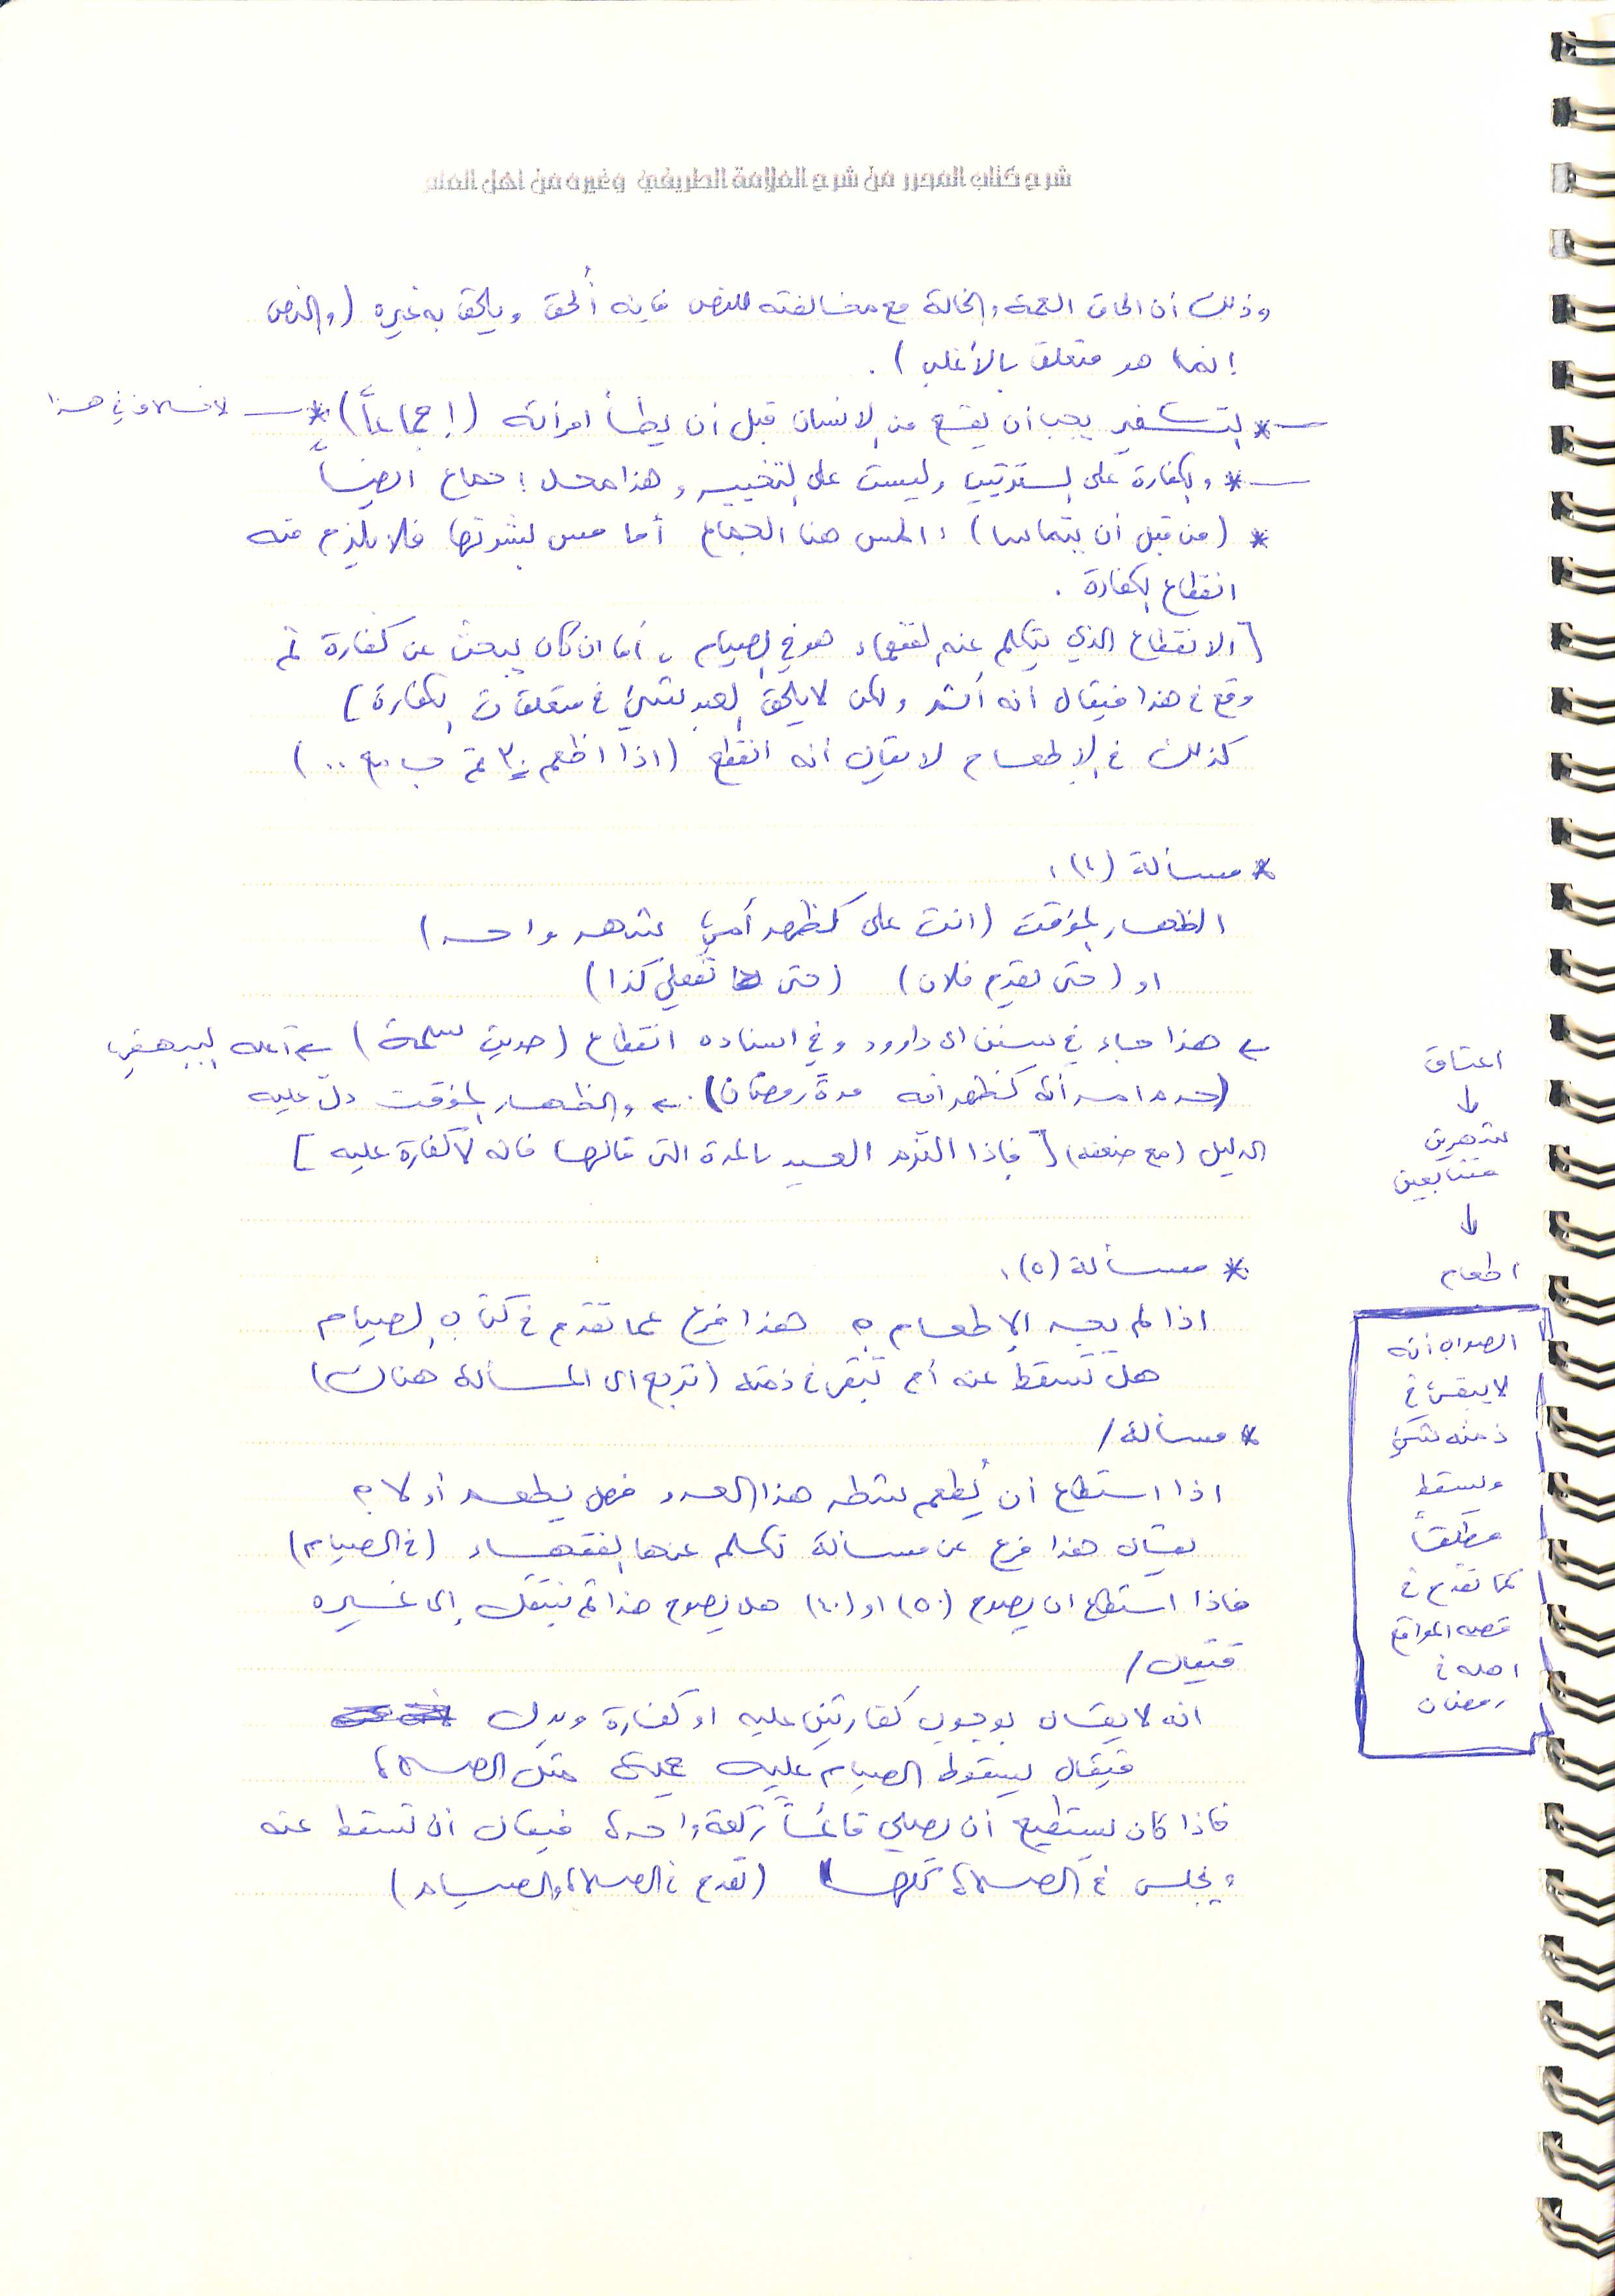 شرح كتاب المحرر من شرح العلامة الطريفي وغيره من اهل العلم
وذلك أن الحاق العمة والخالة مع مخالفته للنص فإنه أُلحق ويلحق به غيره (والنص
إنما هو متعلق بالأغلب).
* التكفير يجب أن يقع من الانسان قبل أن يطأ امرأته (إجماعاً) * لا خلاف في هذا
* والكفارة على الترتيب وليست على التخيير وهذا محل إجماع ايضاً
* (من قبل أن يتماسا): المس هنا الجماع أما مس بشرتها فلا يلزم منه
انقطاع الكفارة.
[الانقطاع الذي يتكلم عنه الفقهاء هو في الصيام، أما ان كان يبحث عن كفارة ثم
وقع في هذا فيقال انه أثم ولكن لا يلحق العبد شيئ في متعلقات الكفارة]
كذلك في الإطعام لا يقال أنه انقطع (اذا اطعم ٣٠ ثم جامع ..)
* مسألة (٤):
الظهار المؤقت (انت علي كظهر أمي شهر واحد)
او (حتى يقدم فلان) (حتى تفعلي كذا)
← هذا جاء في سنن ابي داوود وفي اسناده انقطاع (حديث سلمة) ← أعله البيهقي
(حرم امرأته كظهر امه مدة رمضان). ← والظهار المؤقت دل عليه
الدليل (مع ضعفه) [فاذا التزم العبد بالمدة التي قالها فانه لا كفارة عليه]
* مسألة (٥):
اذا لم يجد الإطعام؟ هذا فرع عما تقدم في كتاب الصيام
هل تسقط عنه أم تبقى في ذمته (ترجع الى المسألة هناك)
* مسألة /
اذا استطاع أن يُطعم شطر هذا العدد فهل يطعم أو لا؟
يقال هذا فرع عن مسألة تكلم عنها الفقهاء (في الصيام)
فاذا استطاع ان يصوم (٥٠) او (٤٠) هل يصوم هذا ثم ينتقل إلى غيره
فيقال /
انه لا يقال بوجوب كفارتين عليه او كفارة وبدل
فيقال بسقوط الصيام عليه مثل الصلاة
فاذا كان يستطيع أن يصلي قائماً ركعة واحدة فيقال أن تسقط عنه
ويجلس في الصلاة كلها (تقدم في الصلاة والصيام)
اعتاق
↓
شهرين
متتابعين
↓
اطعام
الصواب أنه
لا يبقى في
ذمته شيئ
ويسقط
مطلقاً
كما تقدم في
قصة المواقع
اهله في
رمضان